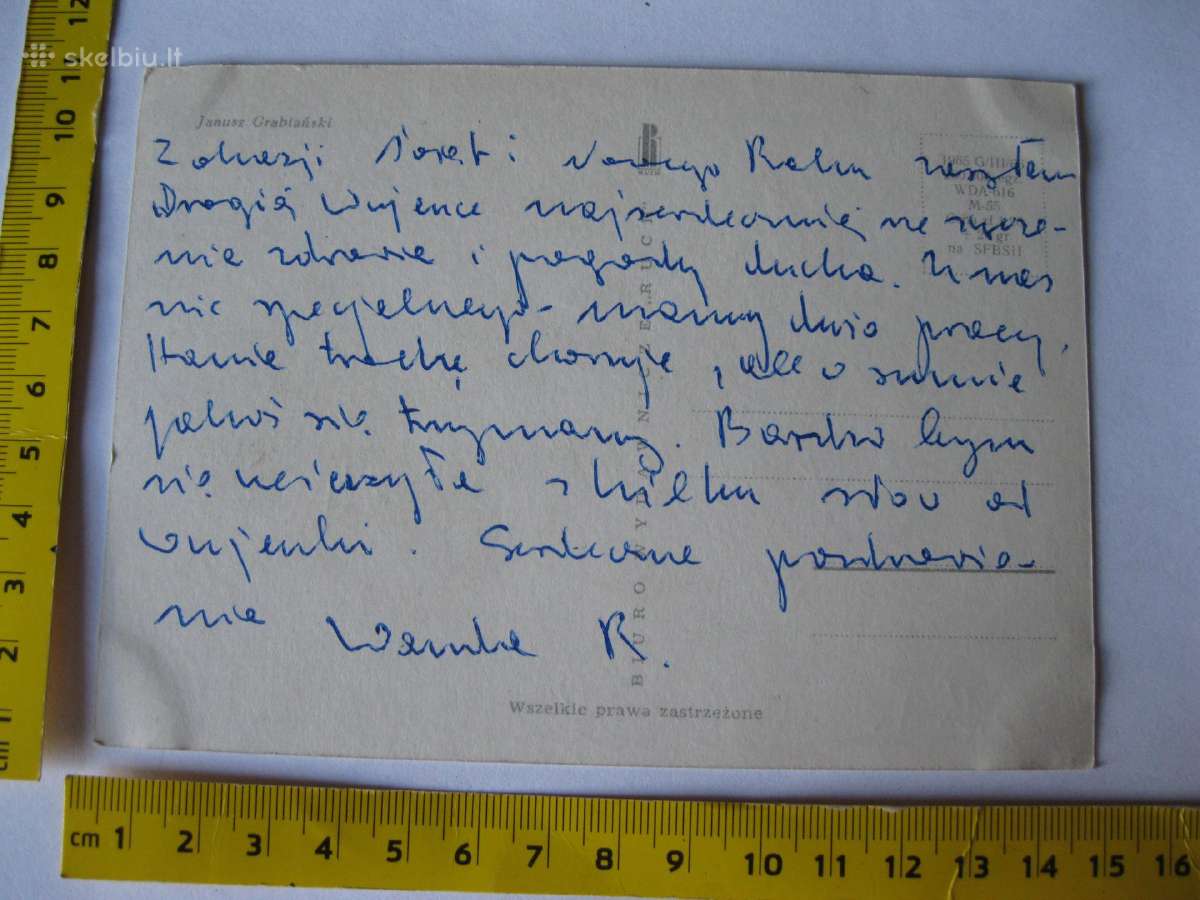 skelbiu.lt
Janusz Grabiański
Z okazji Świąt i Nowego Roku zesyłam
Drogiej Wujence najserdeczniejsze życze-
nia zdrowia i pogody ducha. U nas
nic specjalnego - mamy dużo pracy,
Hania trochę choruje, ale w sumie
jakoś się trzymamy. Bardzo bym
się ucieszyła z kilku słów od
Wujenki. Serdeczne pozdrowie-
nia Wanda R.
BIURO WYDAWNICZE „RUCH"
WDA-616
M-55
gr
na SFBSH
Wszelkie prawa zastrzeżone
12
11
10
9
8
7
6
5
4
3
2
1
cm
cm 1 2 3 4 5 6 7 8 9 10 11 12 13 14 15 16